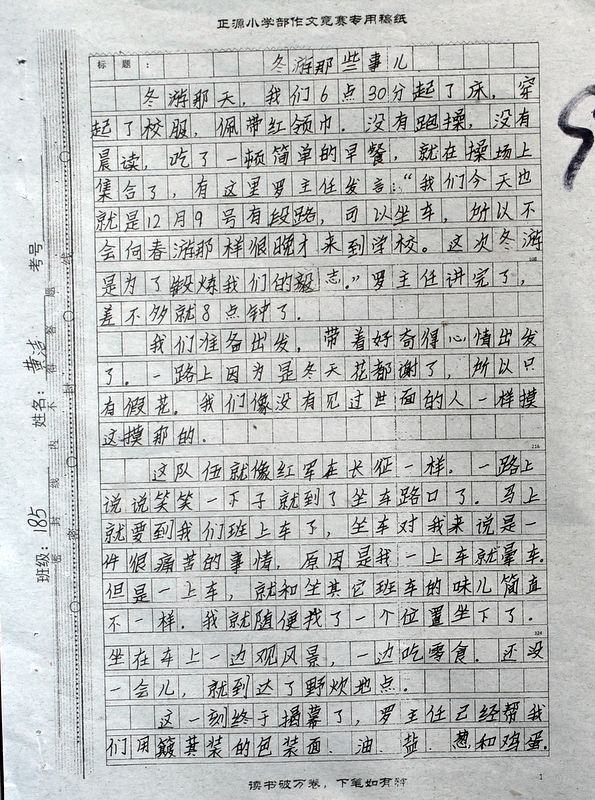 正源小学部作文竞赛专用稿纸
标题：冬游那些事儿
冬游那天，我们6点30分起了床，穿
起了校服，佩带红领巾．没有跑操，没有
晨读，吃了一顿简单的早餐，就在操场上
集合了，有这里罗主任发言：“我们今天也
就是12月9号有段路，可以坐车，所以不
会向春游那样很晚才来到学校。这次冬游
108
是为了锻炼我们的毅志。”罗主任讲完了，
差不多就8点钟了．
我们准备出发，带着好奇得心情出发
了．一路上因为是冬天花都谢了，所以只
有假花．我们像没有见过世面的人一样摸
这摸那的．
216
这队伍就像红军在长征一样。一路上
说说笑笑一下子就到了坐车路口了．马上
就要到我们班上车了，坐车对我来说是一
件很痛苦的事情．原因是我一上车就晕车．
但是一上车，就和坐其它班车的味儿简直
不一样．我就随便找了一个位置坐下了．
324
坐在车上一边观风景，一边吃零食．还没
一会儿，就到达了野炊地点．
这一刻终于揭幕了，罗主任已经帮我
们用簸萁装的包装面．油．盐．葱和鸡蛋．
读书破万卷，下笔如有神
1
班级：185
姓名：黄洁
考号
密封线内不得答题